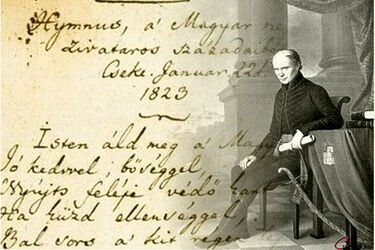 Hymnus, a' Magyar ne
zivataros századaibó
Cseke. Januar. 22d.
1823
Isten áld meg a' Ma
Jó kedvvel, bőséggel,
Nyujts feléje védő kart
Ha küzd ellenséggel
Bal sors a' kit régen